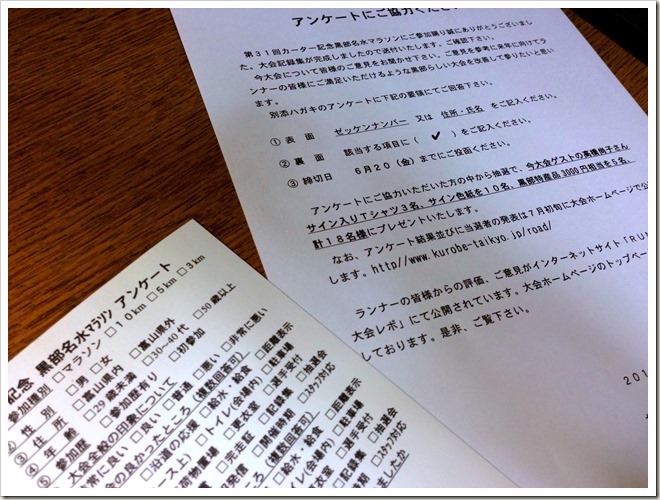 アンケートにご協力くださ
第31回カーター記念黒部名水マラソンにご参加賜り誠にありがとうございまし
た。大会記録集が完成しましたので送付いたします。ご確認下さい。
今大会について皆様のご意見をお聞かせ下さい。ご意見を参考に来年に向けてラ
ンナーの皆様にご満足いただけるような黒部らしい大会を改善して参りたいと思い
ます。
別添ハガキのアンケートに下記の要領にてご回答下さい。
① 表 面 ゼッケンナンバー 又は 住所・氏名 をご記入ください。
② 裏 面 該当する項目に( ✔ )をご記入ください。
③ 締切日 6月20(金)までにご投函ください。
アンケートにご協力いただいた方の中から抽選で、今大会ゲストの高橋尚子さん
サイン入りTシャツ3名、サイン色紙を10名、黒部特産品3000円相当を5名、
計18名様にプレゼントいたします。
なお、アンケート結果並びに当選者の発表は7月初旬に大会ホームページで公
します。http//www.kurobe-taikyo.jp/road/
ランナーの皆様からの評価、ご意見がインターネットサイト「RU
大会レポ」にて公開されています。大会ホームページのトップペー
しております。是非、ご覧下さい。
201
記念 黒部名水マラソン アンケート
参加種別 □マラソン □10km □5km □3km
② 性 別 □男 □女
③ 住 所 □富山県内 □富山県外
④ 年 齢 □29歳未満 □30~40代 □50歳以上
⑤ 参加歴 □参加歴有り □初参加
大会全般の印象について
常に良い □良い □普通 □悪い □非常に悪い
の良かったところ(複数回答可)
□沿道の応援 □給水・給食 □距離表示
□トイレ(会場内) □駐車場
荷物置場 □更衣室 □選手受付 □抽選会
□完走証 □記録集 □スタッフ対応
□開催時期
ころ(複数回答可)
□給水・給食 □距離表示
□トイレ(会場内) □駐車場
□更衣室 □選手受付 □抽選会
□記録集 □スタッフ対応
時期
ましたか